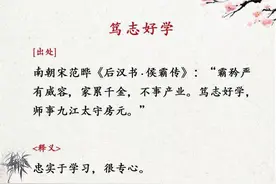 笃志好学
[出处]
南朝宋范晔《后汉书·侯霸传》：“霸矜严
有威容，家累千金，不事产业。笃志好学，
师事九江太守房元。”
<释义>
忠实于学习，很专心。